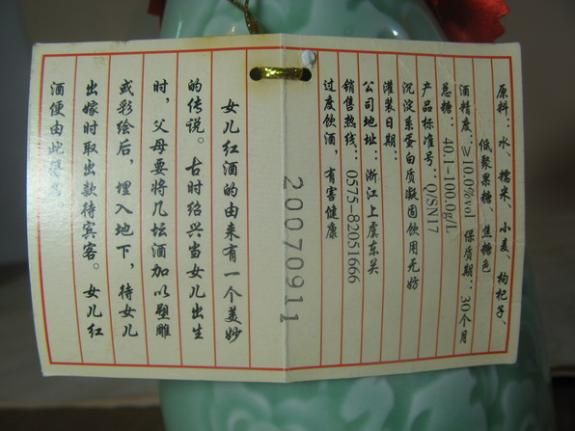 原料：水、糯米、小麦、枸杞子、
低聚果糖、焦糖色
酒精度：≥10.0%vol 保质期：30个月
总糖：40.1-100.0g/L
产品标准号：Q/SN17
沉淀系蛋白质凝固饮用无妨
灌装日期：
公司地址：浙江上虞东关
销售热线：0575-82051666
过度饮酒，有害健康
20070911
女儿红酒的由来有一个美妙
的传说。古时绍兴当女儿出生
时，父母要将几坛酒加以塑雕
或彩绘后，埋入地下，待女儿
出嫁时取出款待宾客。女儿红
酒便由此得名。